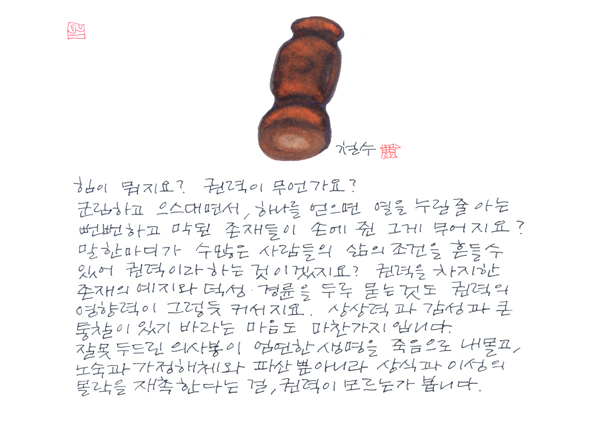 철수
힘이 뭐지요? 권력이 무언가요?
군림하고 으스대면서, 하나를 얻으면 열을 누릴 줄 아는
뻔뻔하고 막된 존재들이 손에 쥔 그게 무어지요?
말한마디가 수많은 사람들의 삶의 조건을 흔들 수
있어 권력이라 하는 것이겠지요? 권력을 차지한
존재의 예지와 덕성·경륜을 두루 묻는 것도 권력의
영향력이 그렇듯 커서지요. 상상력과 감성과 큰
통찰이 있기 바라는 마음도 마찬가지입니다.
잘못 두드린 의사봉이 엄연한 생명을 죽음으로 내몰고,
노숙과 가정해체와 파산 뿐 아니라 상식과 이성의
몰락을 재촉한다는 걸, 권력이 모르는가 봅니다.